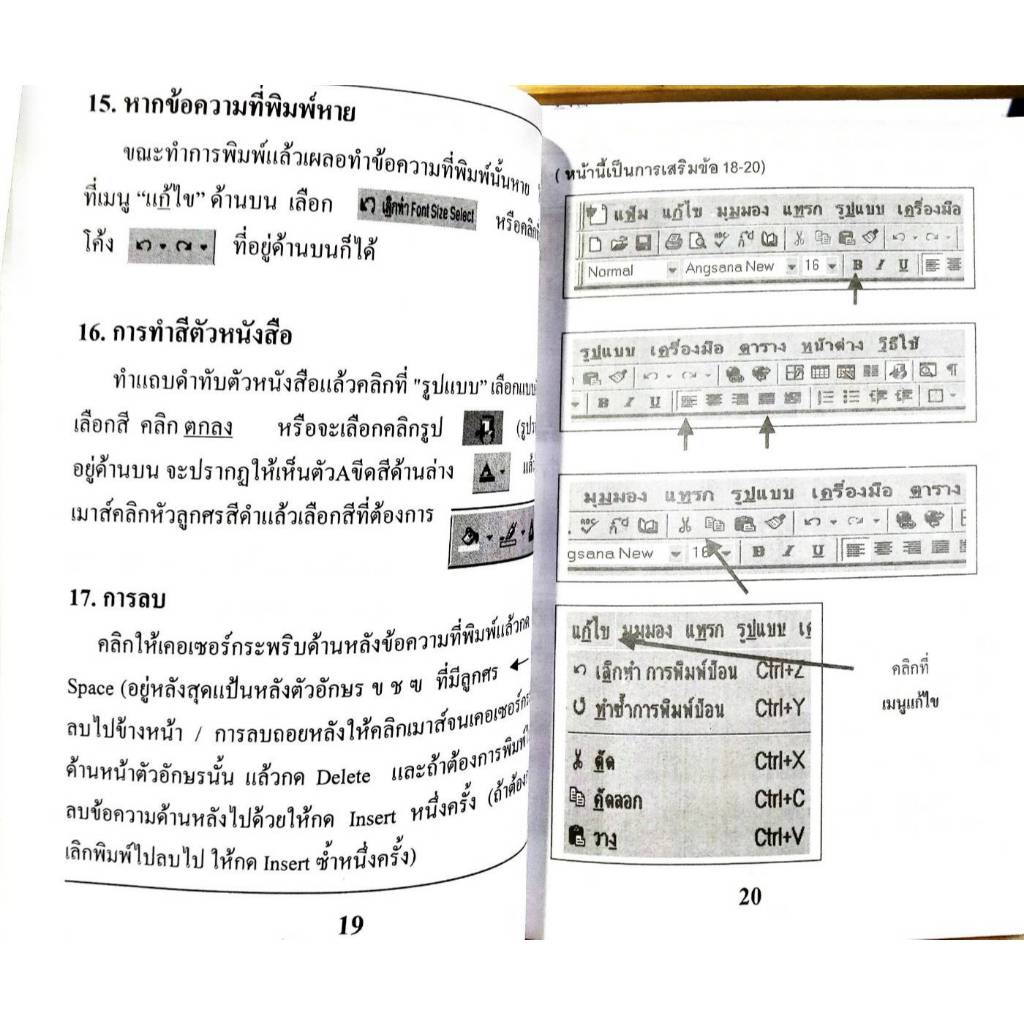 15. หากข้อความที่พิมพ์หาย
ขณะทำการพิมพ์แล้วเผลอทำข้อความที่พิมพ์นั้นหาย
ที่เมนู “แก้ไข” ด้านบน เลือก เลิกทำ Font Size Select หรือคลิก
โค้ง ที่อยู่ด้านบนก็ได้
16. การทำสีตัวหนังสือ
ทำแถบดำทับตัวหนังสือแล้วคลิกที่ "รูปแบบ” เลือก
เลือกสี คลิก ตกลง หรือจะเลือกคลิกรูป
อยู่ด้านบน จะปรากฏให้เห็นตัวAขีดสีด้านล่าง A
เมาส์คลิกหัวลูกศรสีดำแล้วเลือกสีที่ต้องการ
17. การลบ
คลิกให้เคอเซอร์กระพริบด้านหลังข้อความที่พิมพ์แล้วกด
Space (อยู่หลังสุดแป้นหลังตัวอักษร ข ช ฃ ที่มีลูกศร ←
ลบไปข้างหน้า / การลบถอยหลังให้คลิกเมาส์จนเคอเซอร์
ด้านหน้าตัวอักษรนั้น แล้วกด Delete และถ้าต้องการพิมพ์
ลบข้อความด้านหลังไปด้วยให้กด Insert หนึ่งครั้ง (ถ้าต้อง
เลิกพิมพ์ไปลบไป ให้กด Insert ซ้ำหนึ่งครั้ง)
19
( หน้านี้เป็นการเสริมข้อ 18-20)
แฟ้ม แก้ไข มุมมอง แทรก รูปแบบ เครื่องมือ
Normal Angsana New 16 B I U
รูปแบบ เครื่องมือ ตาราง หน้าต่าง วิธีใช้
B I U
มุมมอง แทรก รูปแบบ เครื่องมือ ตาราง
gsana New 16 B I U
แก้ไข มุมมอง แทรก รูปแบบ
เลิกทำ การพิมพ์ป้อน Ctrl+Z
ทำซ้ำการพิมพ์ป้อน Ctrl+Y
ตัด Ctrl+X
คัดลอก Ctrl+C
วาง Ctrl+V
คลิกที่
เมนูแก้ไข
20